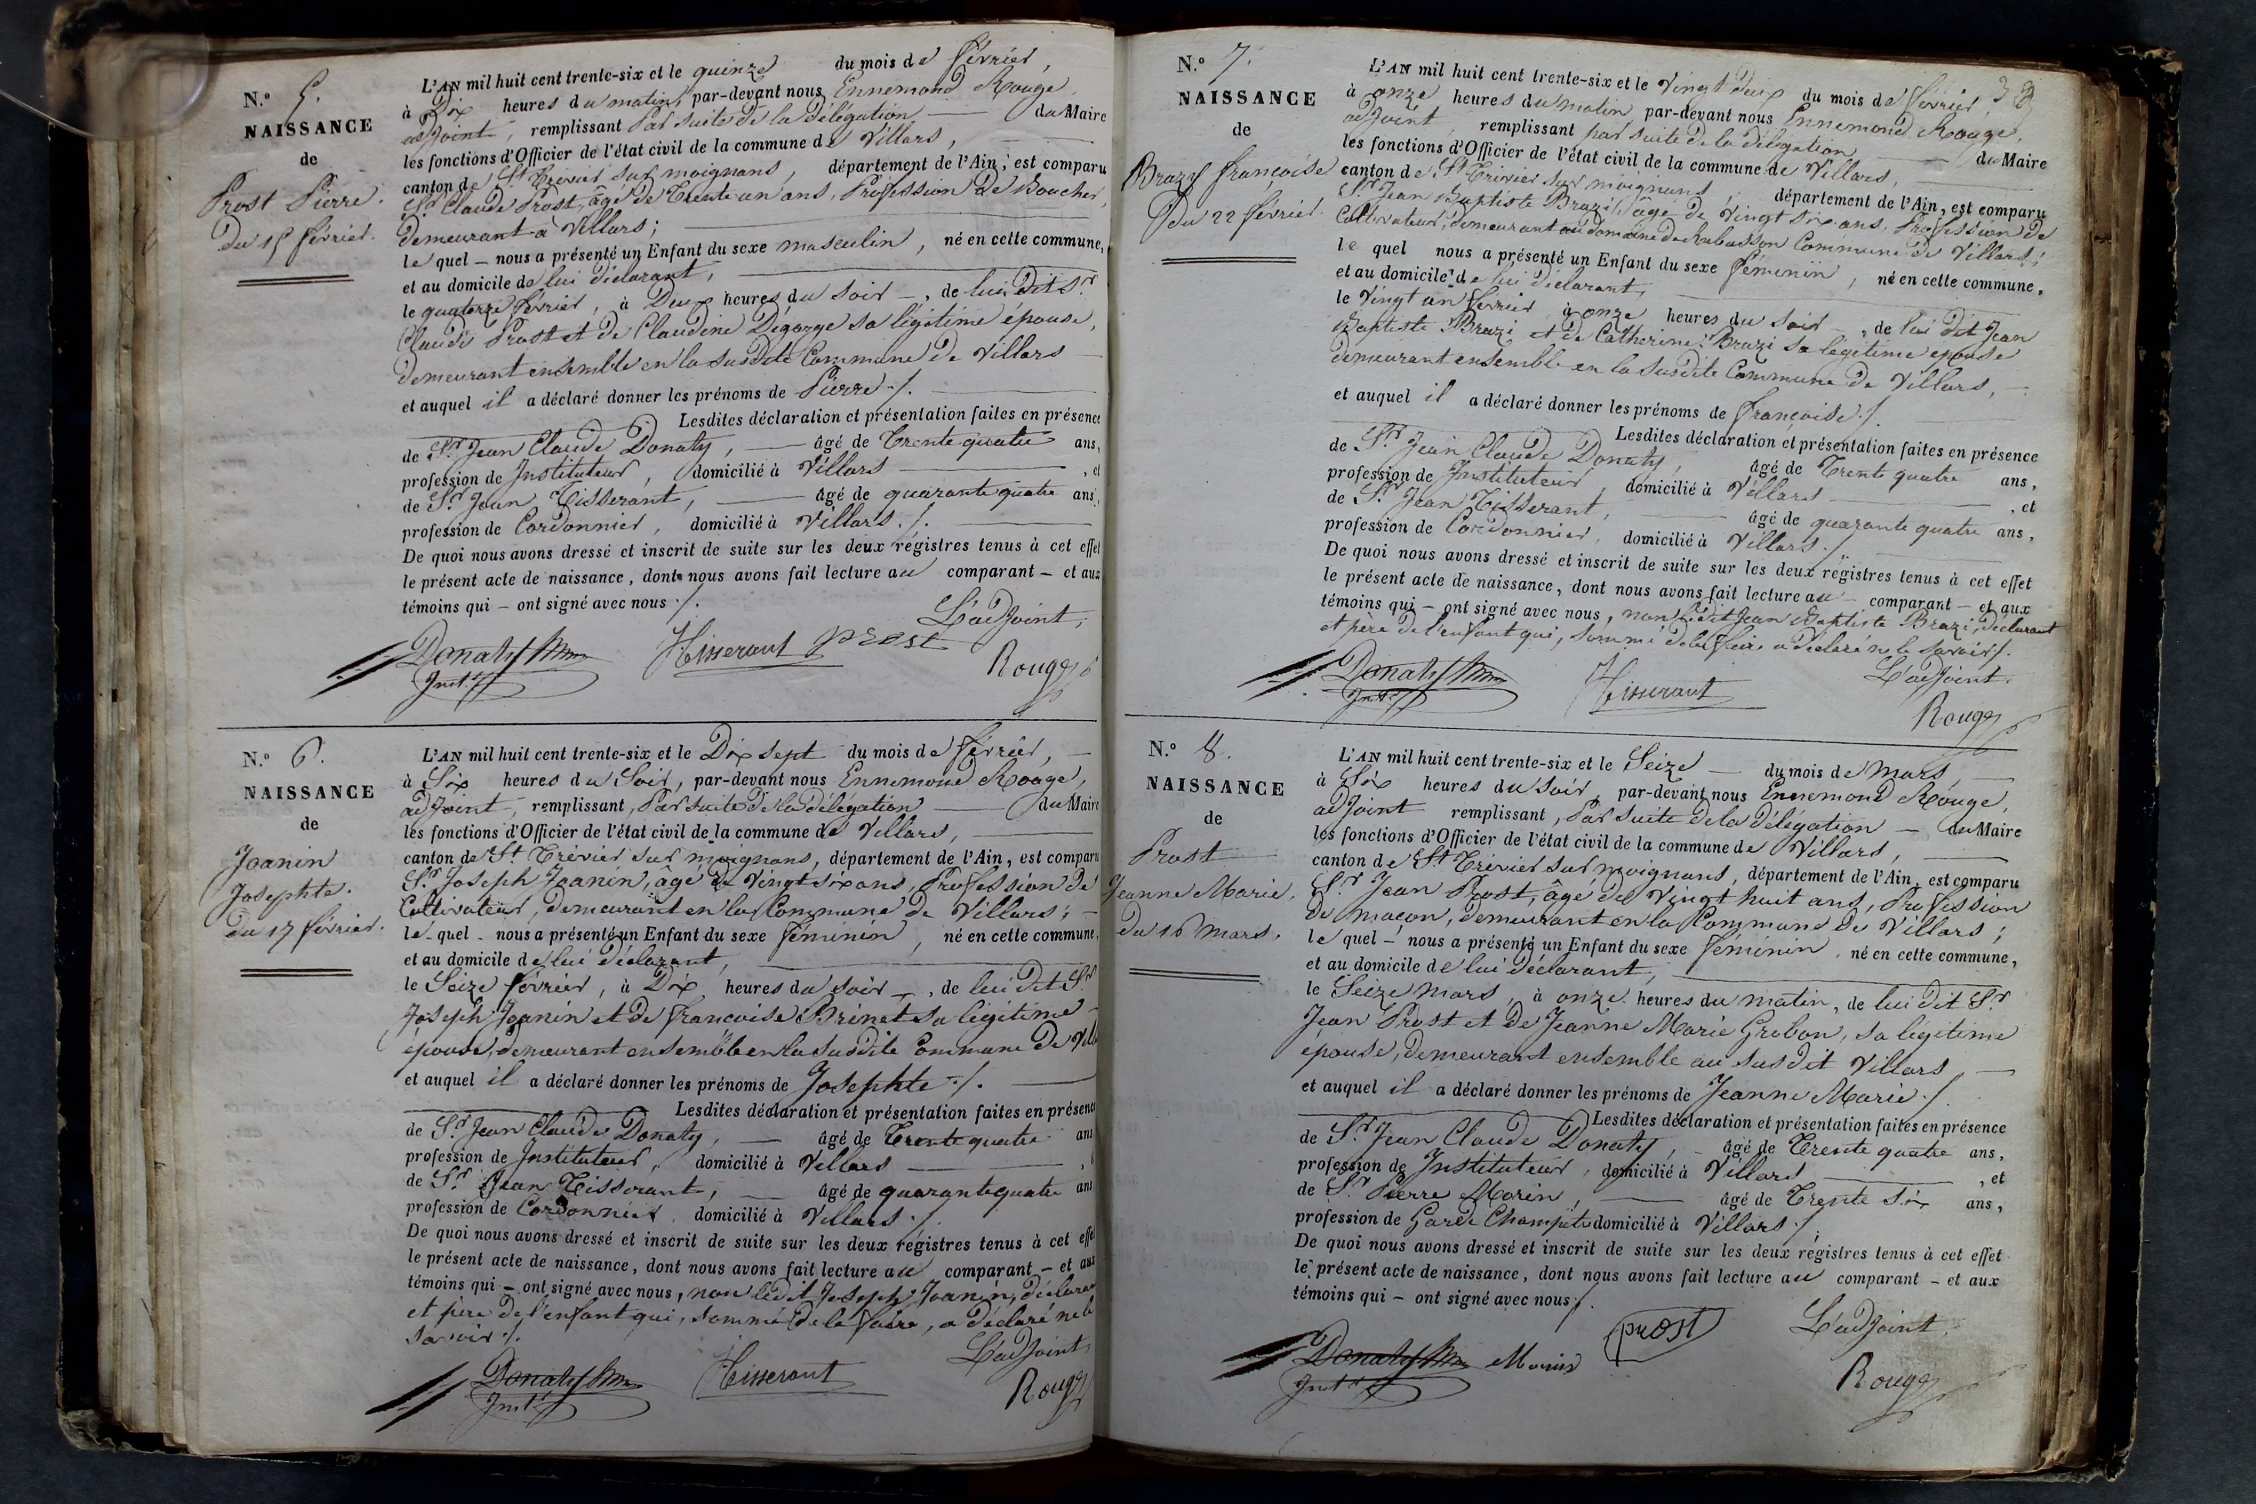 N.° 5.
NAISSANCE
de
Prost Pierre.
Du 15 février.
L'AN mil huit cent trente-six et le quinze du mois de février,
à Dix heures du matin, par-devant nous Ennemond Rouge,
adjoint, remplissant Par suite de la délégation du Maire
les fonctions d'Officier de l'état civil de la commune de Villars,
canton de St Trivier sur moignans, département de l'Ain, est comparu
Sr Claude Prost, âgé de Trente un ans, Profession de Boucher,
demeurant à Villars;
le quel – nous a présenté un Enfant du sexe masculin, né en cette commune,
et au domicile de lui déclarant,
le quatorze février, à Deux heures du soir –, de lui dit Sr
Claude Prost et de Claudine Degorge sa légitime epouse,
demeurant ensemble en la susdite Commune de Villars
et auquel il a déclaré donner les prénoms de Pierre ./.
Lesdites déclaration et présentation faites en présence
de Sr Jean Claude Donaty, âgé de Trente quatre ans,
profession de Instituteur, domicilié à Villars , et
de Sr Jean Tisserant, âgé de quarante quatre ans,
profession de Cordonnier, domicilié à Villars ./.
De quoi nous avons dressé et inscrit de suite sur les deux régistres tenus à cet effet
le présent acte de naissance, dont nous avons fait lecture au comparant – et aux
témoins qui – ont signé avec nous ./.
L'adjoint,
Donaty
Inst.r
Tisserant
prost
Rouge
N.° 6.
NAISSANCE
de
Joanin
Josephte.
du 17 février.
L'AN mil huit cent trente-six et le Dix sept du mois de février,
à Six heures du Soir, par-devant nous Ennemond Rouge,
adjoint, remplissant, Par suite de la délégation du Maire
les fonctions d'Officier de l'état civil de la commune de Villars,
canton de St Trivier sur moignans, département de l'Ain, est comparu
Sr Joseph Joanin, âgé de Vingt six ans, Profession de
Cultivateur, demeurant en la Commune de Villars; –
le quel – nous a présenté un Enfant du sexe féminin, né en cette commune,
et au domicile de lui déclarant,
le Seize février, à Dix heures du soir –, de lui dit Sr
Joseph Joanin et de francoise Brinet sa légitime
epouse, demeurant ensemble en la susdite Commune de Vill
et auquel il a déclaré donner les prénoms de Josephte ./.
Lesdites déclaration et présentation faites en présence
de Sr Jean Claude Donaty, âgé de Trente quatre ans
profession de Instituteur, domicilié à Villars ,
de Sr Jean Tisserant, âgé de quarante quatre ans
profession de Cordonnier, domicilié à Villars ./.
De quoi nous avons dressé et inscrit de suite sur les deux régistres tenus à cet effet
le présent acte de naissance, dont nous avons fait lecture au comparant – et aux
témoins qui – ont signé avec nous, non ledit Joseph Joanin, déclaran
et père de l'enfant qui, sommé de le faire, a déclaré ne le
savoir ./.
L'adjoint,
Donaty
Inst.r
Tisserant
Rouge
38
N.° 7.
NAISSANCE
de
Brazy françoise
Du 22 février.
L'AN mil huit cent trente-six et le Vingt deux du mois de février,
à onze heures du matin, par-devant nous Ennemond Rouge,
adjoint, remplissant par suite de la délégation du Maire
les fonctions d'Officier de l'état civil de la commune de Villars,
canton de St Trivier sur moignans, département de l'Ain, est comparu
Sr Jean Baptiste Brazi, âgé de Vingt six ans, Profession de
Cultivateur, demeurant au domaine de Commune de Villars;
le quel nous a présenté un Enfant du sexe féminin, né en cette commune,
et au domicile de lui déclarant,
le Vingt un février, à onze heures du soir –, de lui dit Jean
Baptiste Brazi et de Catherine Brazi sa légitime epouse
demeurant ensemble en la susdite Commune de Villars, –
et auquel il a déclaré donner les prénoms de françoise ./.
Lesdites déclaration et présentation faites en présence
de Sr Jean Claude Donaty, âgé de Trente quatre ans,
profession de Instituteur, domicilié à Villars , et
de Sr Jean Tisserant, âgé de quarante quatre ans,
profession de Cordonnier, domicilié à Villars ./.
De quoi nous avons dressé et inscrit de suite sur les deux régistres tenus à cet effet
le présent acte de naissance, dont nous avons fait lecture au – comparant – et aux
témoins qui – ont signé avec nous, non ledit Jean Baptiste Brazi, déclarant
et père de l'enfant qui, sommé de le faire a déclaré ne le savoir ./.
L'adjoint,
Donaty
Inst.r
Tisserant
Rouge
N.° 8.
NAISSANCE
de
Prost
Jeanne Marie,
du 16 Mars.
L'AN mil huit cent trente-six et le Seize – du mois de Mars, –
à Six heures du soir, par-devant nous Ennemond Rouge,
adjoint remplissant, Par suite de la délégation – du Maire
les fonctions d'Officier de l'état civil de la commune de Villars,
canton de St Trivier sur moignans, département de l'Ain, est comparu
Sr Jean Prost, âgé de Vingt huit ans, Profession
de maçon, demeurant en la Commune de Villars;
le quel – nous a présenté un Enfant du sexe féminin, né en cette commune,
et au domicile de lui déclarant,
le Seize mars, à onze heures du matin, de lui dit Sr
Jean Prost et de Jeanne Marie Grobon, sa légitime
epouse, demeurant ensemble au susdit Villars, –
et auquel il a déclaré donner les prénoms de Jeanne Marie ./.
Lesdites déclaration et présentation faites en présence
de Sr Jean Claude Donaty, – âgé de Trente quatre ans,
profession de Instituteur, domicilié à Villars , et
de Sr Pierre Morin, âgé de Trente six ans,
profession de Garde Champetre domicilié à Villars ./.
De quoi nous avons dressé et inscrit de suite sur les deux régistres tenus à cet effet
le présent acte de naissance, dont nous avons fait lecture au comparant – et aux
témoins qui – ont signé avec nous ./.
L'adjoint,
Donaty
Inst.r
Morin
prost
Rouge